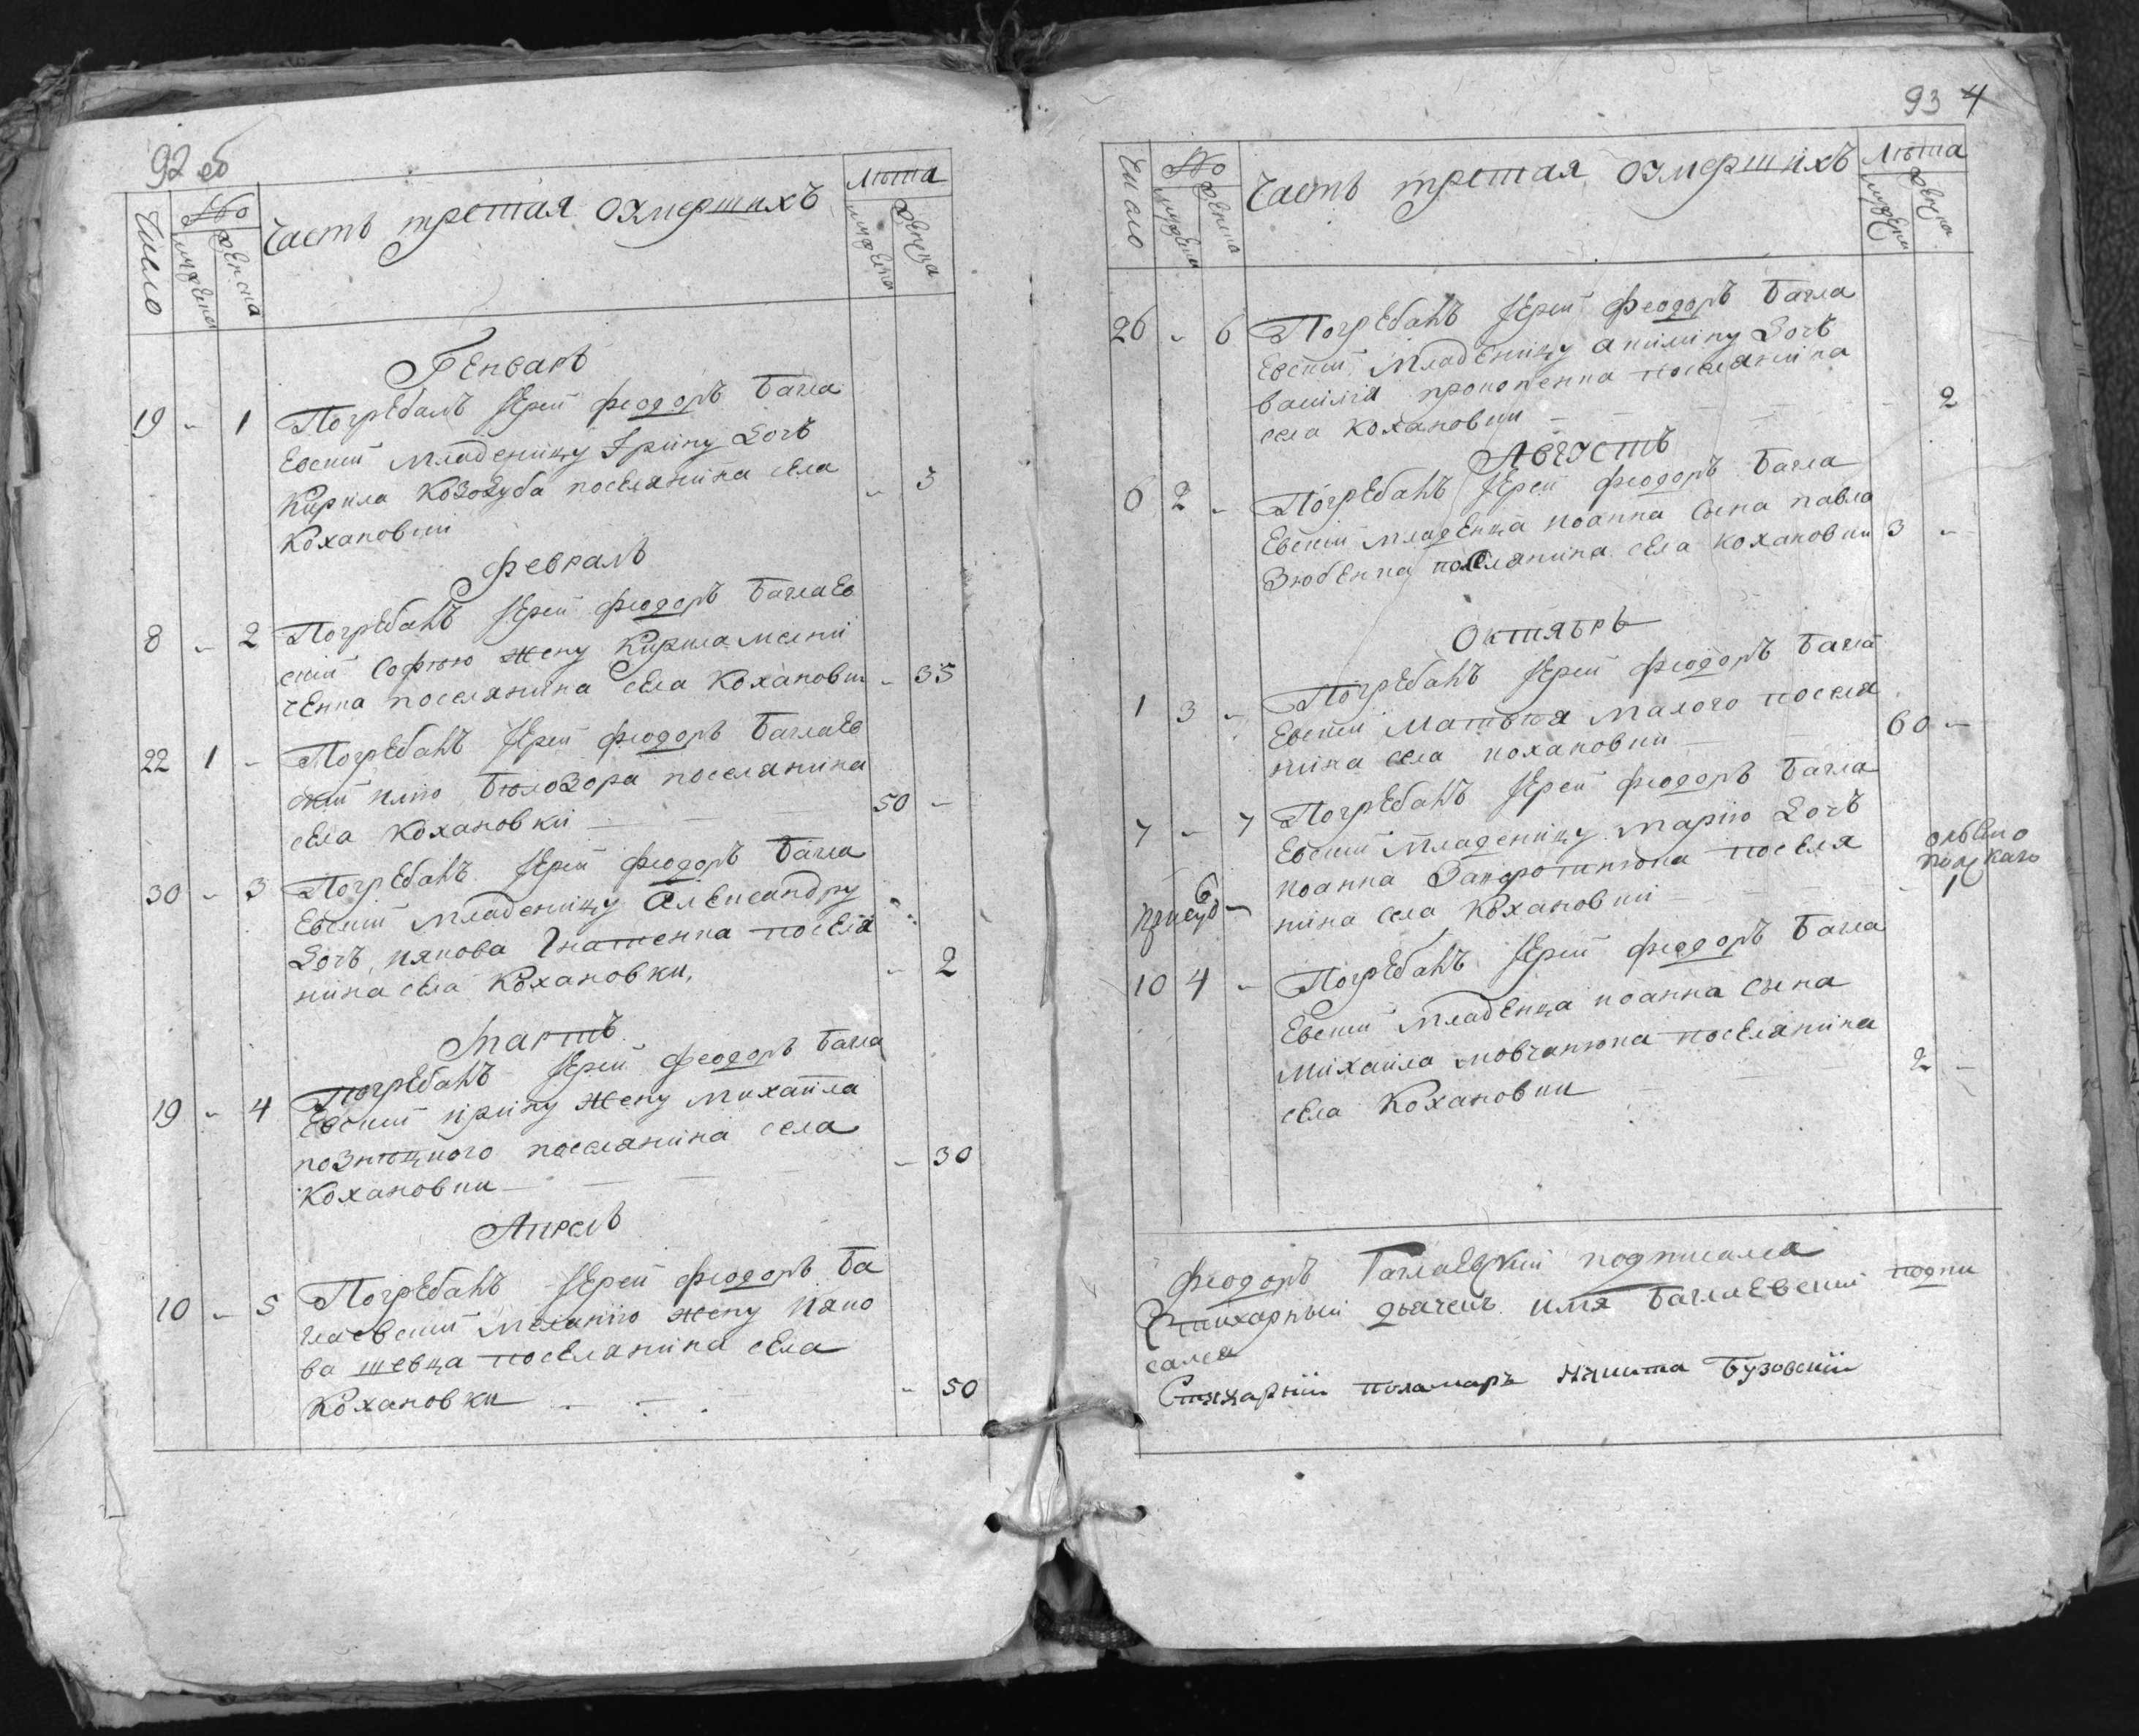 92 об
Число № мужеска женска Часть третая оумершихъ лѣта мужеска женска
Генварь
19 - 1 Погребалъ Іерей Феодоръ Багла
евскій младеницу Ірину Дочь
Кирила Козозуба поселянина села - 3
Кохановки
Февраль
8 - 2 Погребалъ Іерей Феодоръ Баглаев
скій Софию жену Кирила
ченка поселянина села Кохановки - 35
22 1 - Погребалъ Іерей Феодоръ Баглаев
скій илию Бѣлозора поселянина
села Кохановки 50 -
30 - 3 Погребалъ Іерей Феодоръ Багла
евскій младеницу Александру
Дочь иякова Гнатенка поселя
нина села Кохановки - 2
Мартъ
19 - 4 Погребалъ Іерей Феодоръ Багла
евскій ирину жену михаила
поселянина села
Кохановки - 30
Апрель
10 - 5 Погребалъ Іерей Феодоръ Ба
глаевскій меланию жену ияко
ва шевца поселянина села
Кохановки - 50
93 4
Число № мужеска женска Часть третая оумершихъ лѣта мужеска женска
26 - 6 Погребалъ Іерей Феодоръ Багла
евскій младеницу акилину Дочь
василія прокопенка поселянина
села Кохановки - 2
Августъ
6 2 - Погребалъ Іерей Феодоръ Багла
евскій младенца иоанна сына павла
Зюбенка поселянина села кохановки 3 -
Октябрь
1 3 - Погребалъ Іерей Феодоръ Багла
евскій Матвея Малого поселя
нина села кохановки 60 -
7 - 7 Погребалъ Іерей Феодоръ Багла
евскій младеницу марию Дочь
иоанна поселя
нина села Кохановки - 1
10 4 - Погребалъ Іерей Феодоръ Багла
евскій младенца иоанна сына
михаила мовчанюка поселянина
села Кохановки 2 -
Феодоръ Баглаевский подписался
Стихарный дьячекъ Баглаевский подпи
сался
Стихарній поламарь Никита Бузовскій